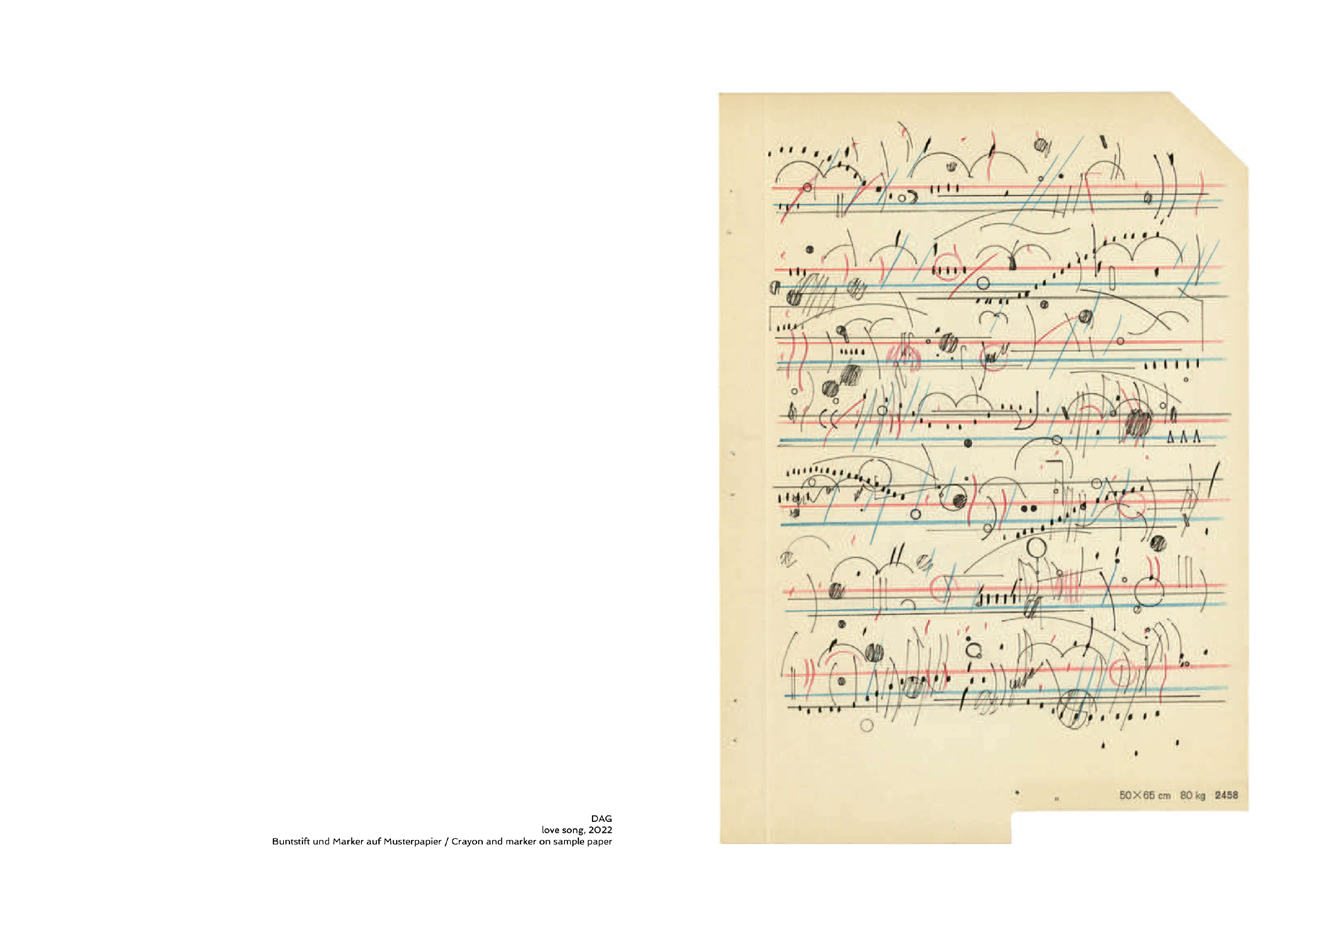 DAG
love song, 2022
Buntstift und Marker auf Musterpapier / Crayon and marker on sample paper
50×65 cm 80 kg 2458